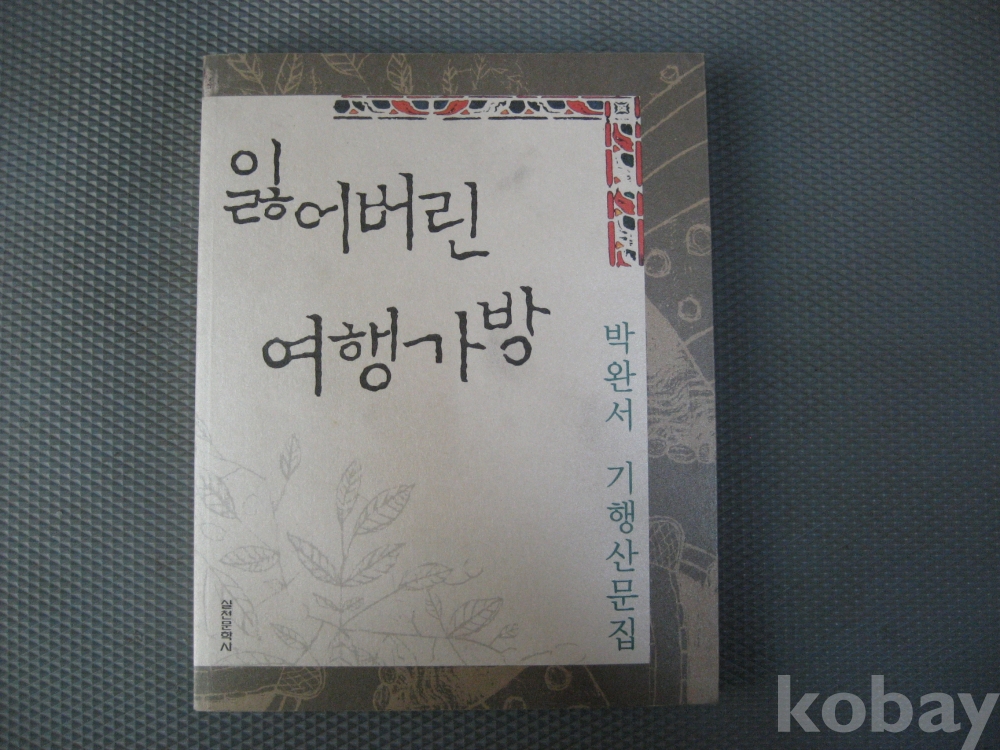 잃어버린
여행가방
박완서 기행산문집
실천문학사
kobay